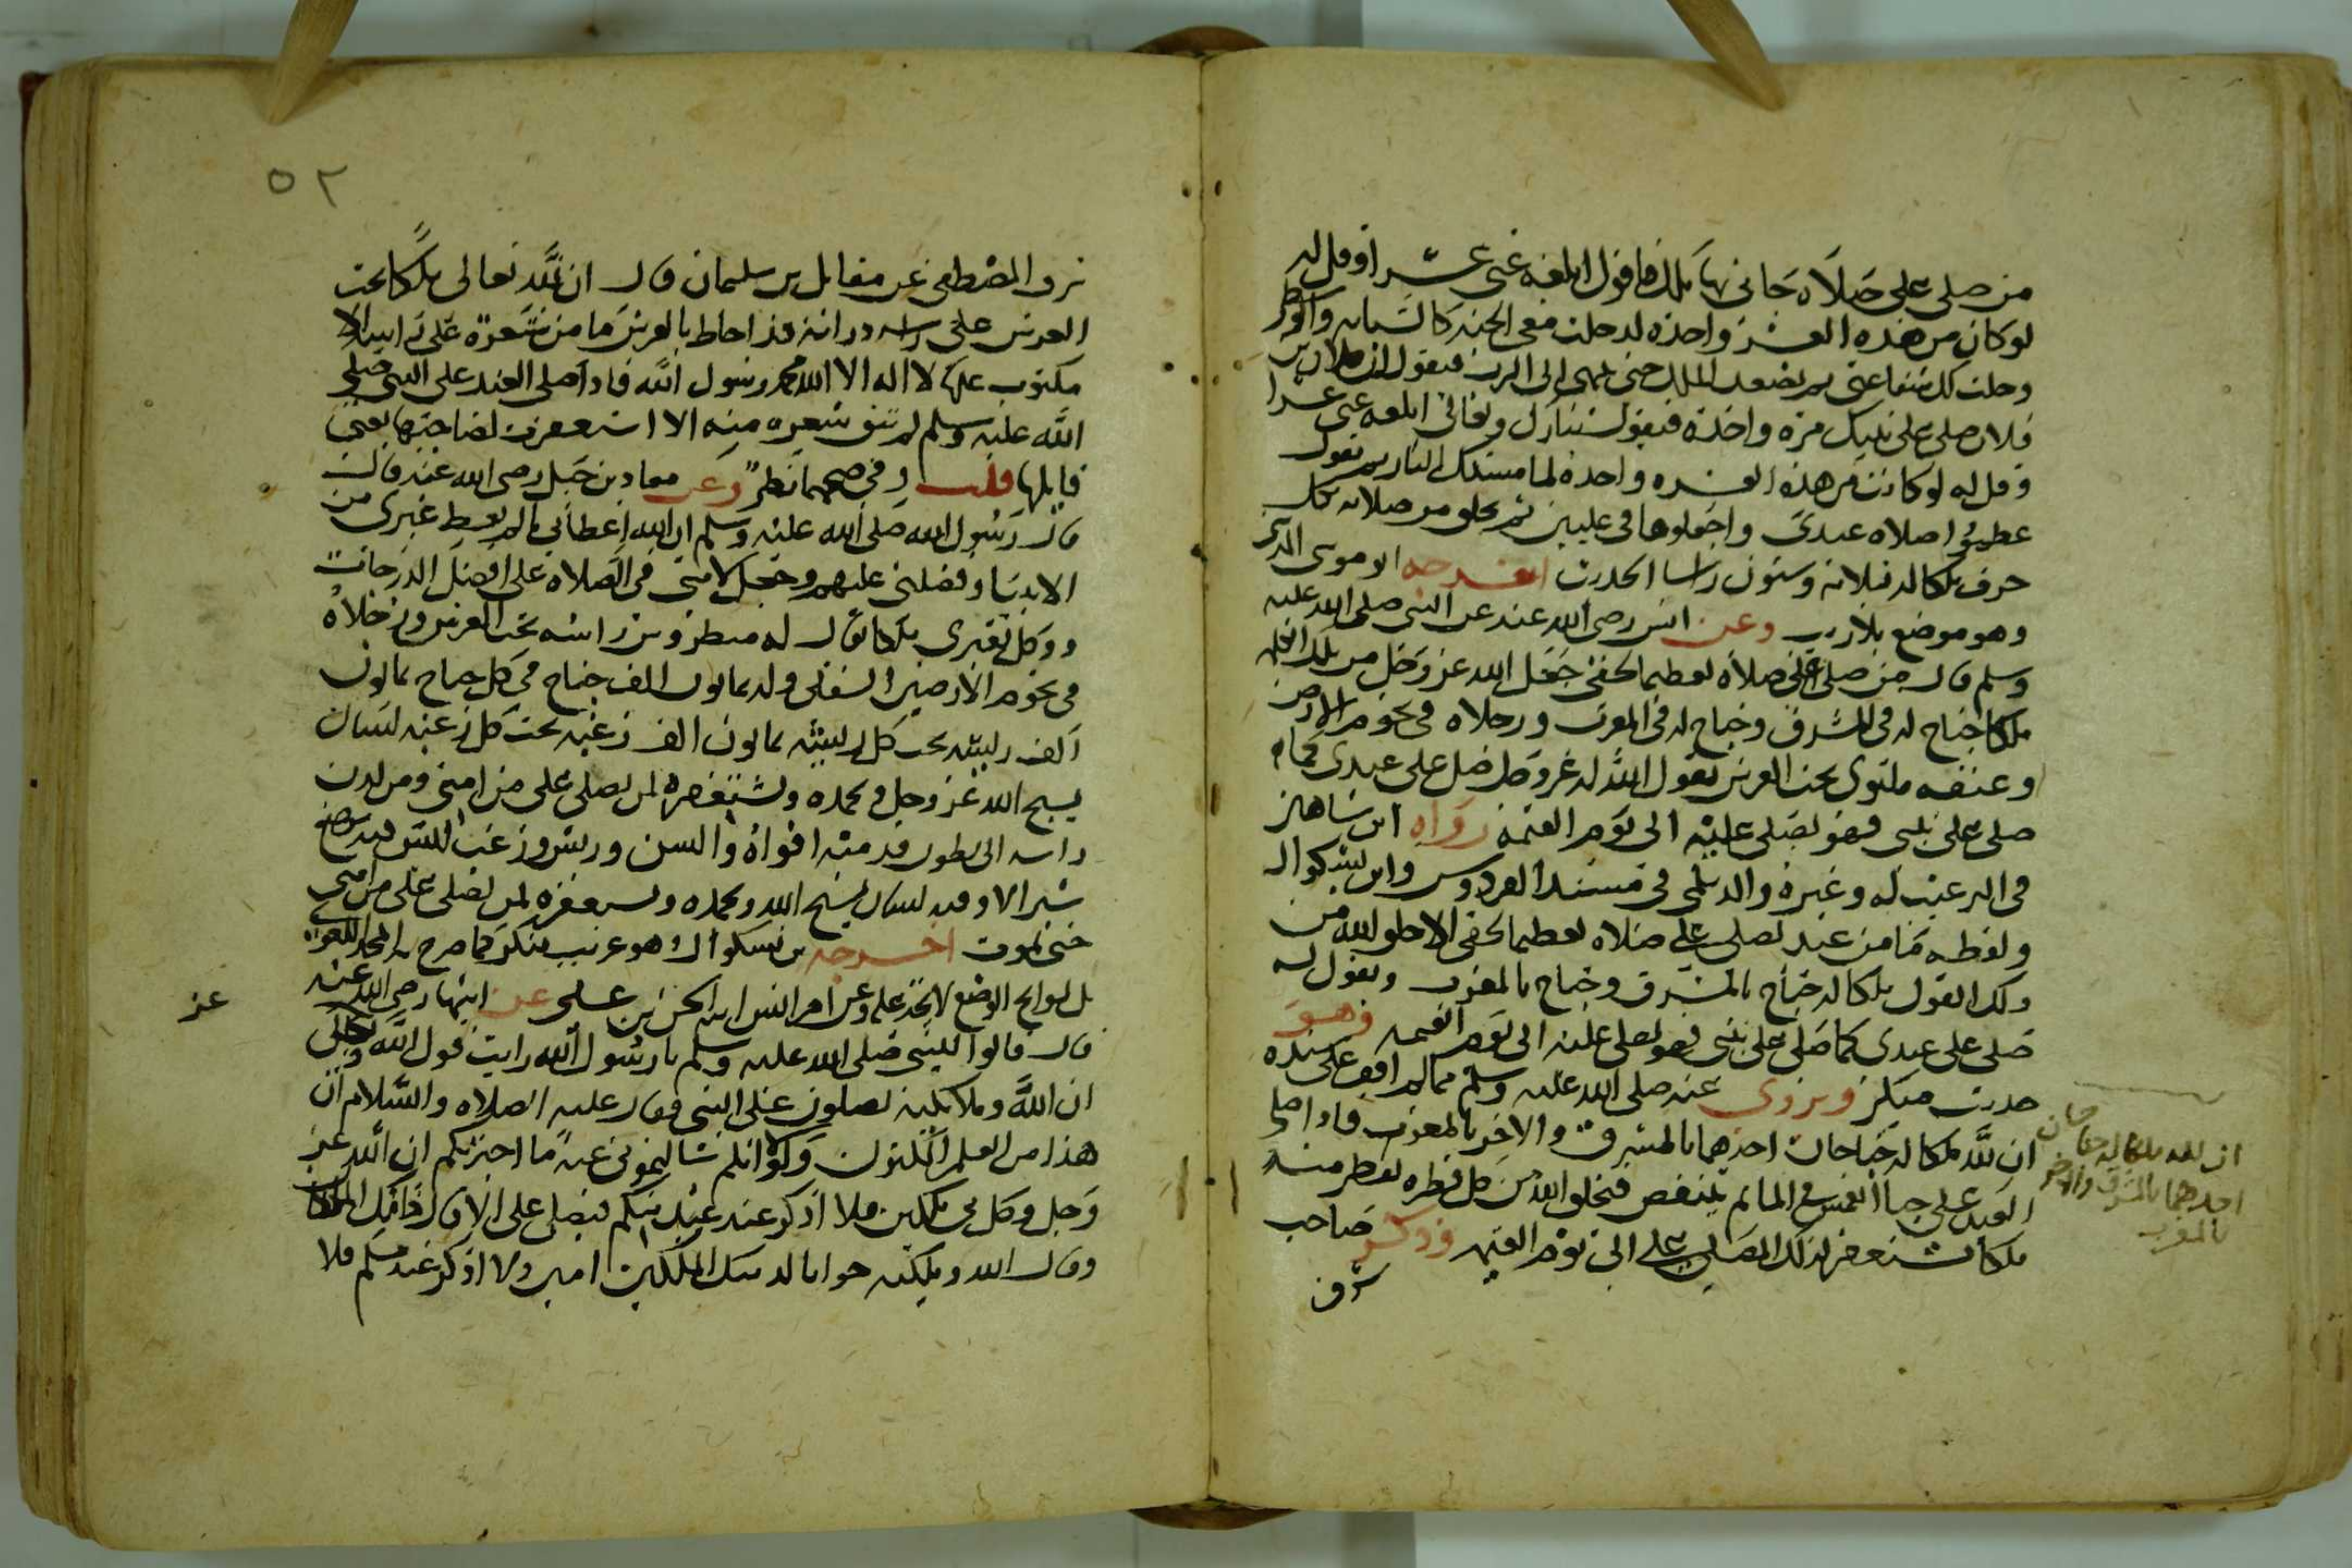 من صلى علي صلاة جاني بها ملك فاقول ابلغه عني عشرا وقل له
لو كان من هذه العشر واحدة لدخلت معي الجنة كالسبابة والوسطى
وحلت لك شفاعتي ثم يصعد الملك حتى ينتهي الى الرب فيقول ان فلان بن
فلان صلى على نبيك مرة واحدة فيقول تبارك وتعالى ابلغه عني عشرا
وقل له لو كانت من هذه العشرة واحدة لما مستك النار ثم يقول
عظموا صلاة عبدي واجعلوها في عليين ثم يخلق من صلاته بكل
حرف ملكا له ثلاثة وستون راسا الحديث اخرجه ابو موسى المديني
وهو موضوع بلا ريب وعن انس رضي الله عنه عن النبي صلى الله عليه
وسلم قال من صلى علي صلاة تعظيما لحقي جعل الله عز وجل من تلك الكلمة
ملكا جناح له في المشرق وجناح له في المغرب ورجلاه في تخوم الارضين
وعنقه ملتوي تحت العرش يقول الله له عز وجل صل على عبدي كما
صلى على نبيي فهو يصلي عليه الى يوم القيمة رواه ابن شاهين
في الترغيب له وغيره والديلمي في مسند الفردوس وابن بشكوال
ولفظه ما من عبد يصلي علي صلاة تعظيما لحقي الا خلق الله من
ذلك القول ملكا له جناح بالمشرق وجناح بالمغرب ويقول له
صلي على عبدي كما صلى على نبيي فهو يصلي عليه الى يوم القيمة وهو
حديث منكر ويروى عنه صلى الله عليه وسلم مما لم اقف على سنده
ان لله ملكا له جناحان احدهما بالمشرق والاخر بالمغرب فاذا صلى
العبد علي حبا انغمس في الماء ثم ينتفض فيخلق الله من كل قطرة تقطر منه
ملكا يستغفر لذلك المصلي علي الى يوم القيمة وذكر صاحب
شرف
ان لله ملكا له جناحان
احدهما بالمشرق والاخر
بالمغرب
٥٢
شرف المصطفى عن مقاتل بن سليمان قال ان لله تعالى ملكا تحت
العرش على راسه ذوابة قد احاط بالعرش ما من شعرة على راسه الا
مكتوب عليها لا اله الا الله محمد رسول الله فاذا صلى العبد على النبي صلى
الله عليه وسلم لم تبق شعرة منه الا استغفرت لصاحبها يعني
قايلها قلت وفي صحتهما نظر وعن معاذ بن جبل رضي الله عنه قال
قال رسول الله صلى الله عليه وسلم ان الله اعطاني ما لم يعط غيري من
الانبيا وفضلني عليهم وجعل لامتي في الصلاة علي افضل الدرجات
ووكل بقبري ملكا يقال له منطروس راسه تحت العرش ورجلاه
في تخوم الارضين السفلى وله ثمانون الف جناح في كل جناح ثمانون
الف ريشة تحت كل ريشة ثمانون الف زغبة تحت كل زغبة لسان
يسبح الله عز وجل ويحمده ويستغفره لمن يصلي علي من امتي ومن لدن
راسه الى بطون قدميه افواه والسن وريش وزغب ليس فيه موضع
شبر الا وفيه لسان يسبح الله ويحمده ويستغفره لمن يصلي علي من امتي
حتى يموت اخرجه بن بشكوال وهو غريب منكر كما صرح به المجد اللغوي
بل لوايح الوضع لايحة عليه وعن ام انس ابنة الحسن بن علي عن ابيها رضي الله عنه
قال قالوا للنبي صلى الله عليه وسلم يا رسول الله رايت قول الله تعالى
ان الله وملائكته يصلون على النبي فقال عليه الصلاة والسلام ان
هذا من العلم المكنون ولولا انكم سالتموني عنه ما اخبرتكم ان الله عز
وجل وكل بي ملكين فلا اذكر عند عبد مسلم فيصلي علي الا قال ذانك الملكان
وقال الله وملائكته جوابا لذينك الملكين امين ولا اذكر عند مسلم فلا
عز